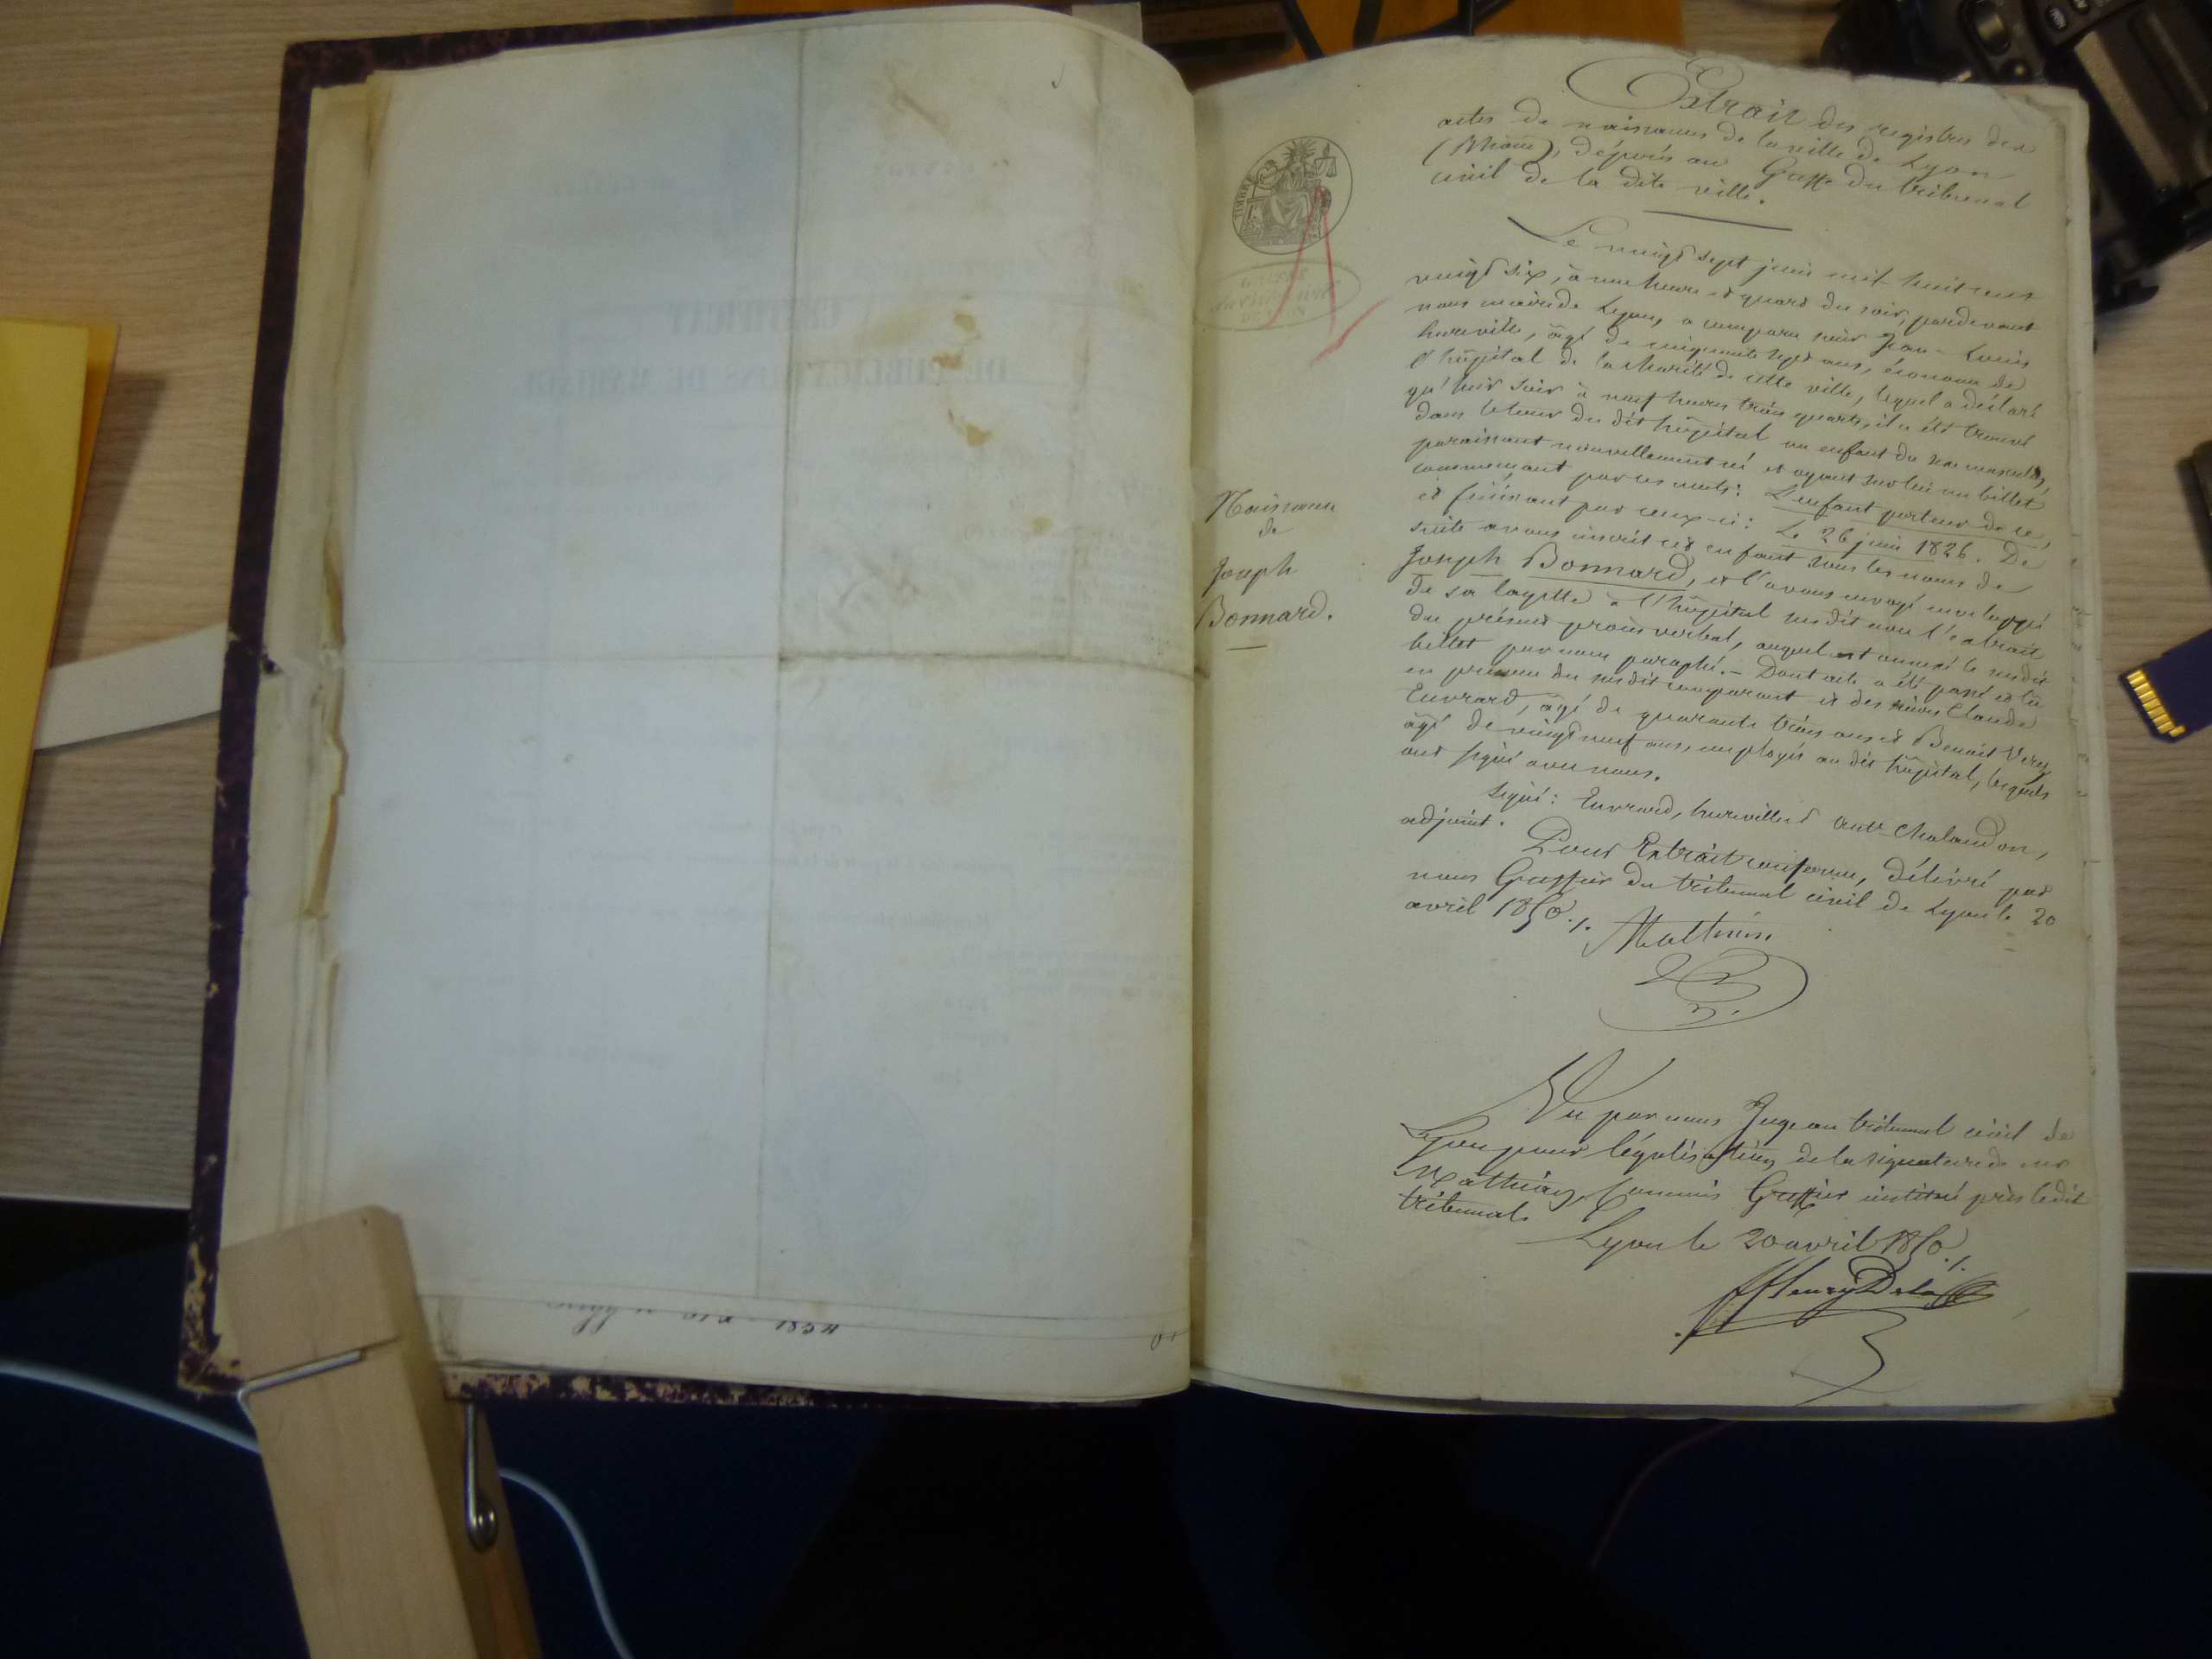 Extrait des registres des
actes de naissances de la ville de Lyon
(Rhône), déposés au Greffe du tribunal
civil de la dite ville.
TIMBRE
Le vingt sept juin mil huit cent
vingt six, à une heure et quart du soir, pardevant
nous maire de Lyon, a comparu sieur Jean-Louis
hureville, âgé de cinquante sept ans, économe de
l'hôpital de la charité de cette ville, lequel a déclaré
qu'hier soir à neuf heures trois quarts, il a été trouvé
dans le tour du dit hôpital un enfant du sexe masculin,
paraissant nouvellement né et ayant sur lui un billet
commençant par ces mots: L'enfant porteur de ce,
et finissant par ceux-ci: Le 26 juin 1826. De
suite avons inscrit cet enfant sous les noms de
Joseph Bonnard, et l'avons envoyé enveloppé
de sa layette à l'hôpital susdit avec l'extrait
du présent procès verbal, auquel est annexé le susdit
billet par nous paraphé. - Dont acte a été passé et lu
en présence du susdit comparant et des sieurs Claude
Euvrard, âgé de quarante trois ans et Benoit Very
âgé de vingt neuf ans, employés au dit hôpital, lesquels
ont signé avec nous.
Signé: Euvrard, hureville et Chalandon,
adjoint.
Pour Extrait conforme, délivré par
nous Greffier du tribunal civil de Lyon le 20
avril 1850./.
Mathieu
Naissance
de
Joseph
Bonnard.
Vu par nous Juge au tribunal civil de
Lyon pour légalisation de la signature de mr
Mathieu, Commis Greffier près ledit
tribunal.
Lyon le 20 avril 1850./.
CERTIFICAT
DE PUBLICATIONS DE MARIAGE